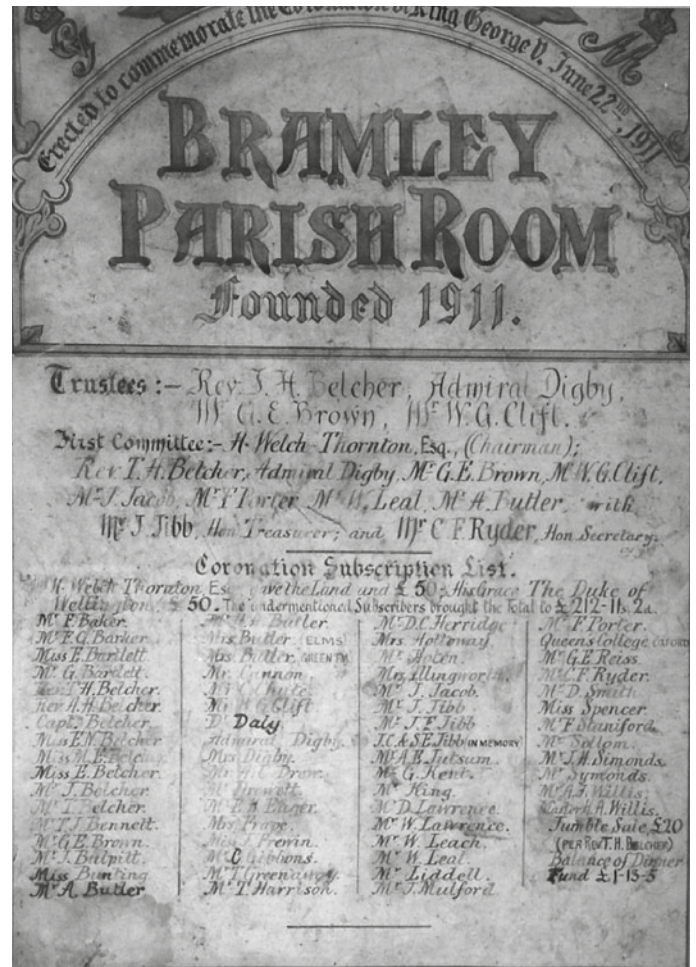 Erected to commemorate the Coronation of King George V. June 22nd, 1911
BRAMLEY
PARISH ROOM
Founded 1911.
Trustees:- Rev. T. H. Belcher, Admiral Digby,
Mr G. E. Brown, Mr W. G. Clift.
First Committee:- H. Welch-Thornton, Esq., (Chairman);
Rev T. H. Belcher, Admiral Digby, Mr G. E. Brown, Mr W. G. Clift,
Mr J. Jacob, Mr F. Porter, Mr W. Leal, Mr A. Butler, with
Mr J Jibb, Hon Treasurer; and Mr C F Ryder, Hon Secretary.
Coronation Subscription List.
H. Welch Thornton, Esq. gave the Land and £50; His Grace The Duke of
Wellington, £50. The undermentioned Subscribers brought the Total to £212-11s. 2d.
Mr F. Baker.
Mr F. G. Barker.
Miss E. Bartlett.
Mr G. Bartlett.
Rev T. H. Belcher.
Rev A. H. Belcher.
Capt. Belcher.
Miss E. N. Belcher
Miss M. E. Belcher
Miss E. Belcher.
Mr J. Belcher.
Mr T. Belcher.
Mr T. J. Bennett.
Mr G. E. Brown.
Mr J. Bulpitt.
Miss Bunting
Mr A. Butler
Butler
Mrs. Butler (ELMS)
Mrs. Butler, GREEN
Mr. Cannon
Mr C. Chute
Mr W. G. Clift
Dr Daly
Admiral Digby.
Mrs. Digby.
Mr. H. C. Drow.
Mr Drewett
Mr E. H.
Mrs. Frape.
Frewin.
Mr C Gibbons.
Mr T Greenaway.
Mr T. Harrison.
Mr D. C. Herridge
Mrs. Holloway.
Mr Hoten.
Mrs. Illingworth.
Mr J. Jacob.
Mr J. Jibb
Mr J. F. Jibb
J. C. & S. E. Jibb IN MEMORY
Mr A. E. Jutsum.
Mr G. Kent.
Mr King.
Mr D. Lawrence.
Mr W. Lawrence.
Mr W. Leach.
Mr W. Leal.
Mr Liddell.
Mr J. Mulford
Mr F. Porter.
Queens College OXFORD
Mr G. E. Reiss.
Mr C. F. Ryder.
Mr D. Smith
Miss Spencer.
Mr F. Staniford.
Mr Sellom.
Mr J. H. Simonds.
Mr Symonds.
Mr A. J. Willis.
Master H. A. Willis.
Jumble Sale £20
(PER REV T. H. BELCHER)
Balance of Dinner
Fund £1-13-5